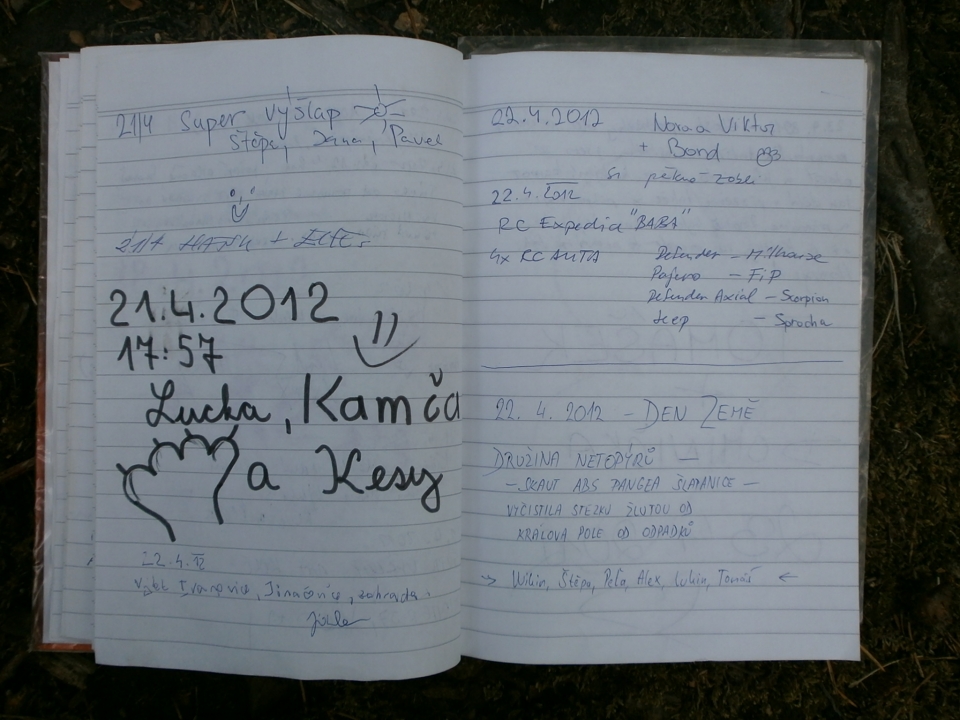 21/4 Super výšlap
Štěpa, Jana, Pavel
21/4 HANK +
21.4.2012
17:57
Lucka, Kamča
a Kesy
22.4.12
Ivanovice, Jinačovice, zahrada,
22.4.2012 Nora a Viktor
+ Bond
si pěkně
22.4.2012
RC Expedia "BABA"
4x RC AUTA Defender - Milhouse
Pajero - FiP
Defender Axial - Scorpion
Jeep - Sprocha
22. 4. 2012 - DEN ZEMĚ
DRUŽINA NETOPÝRŮ -
- SKAUT ABS PANGEA ŠLAPANICE -
VYČISTILA STEZKU ŽLUTOU OD
KRÁLOVA POLE OD ODPADKŮ
Štěpa, Peťa, Alex, Tomáš